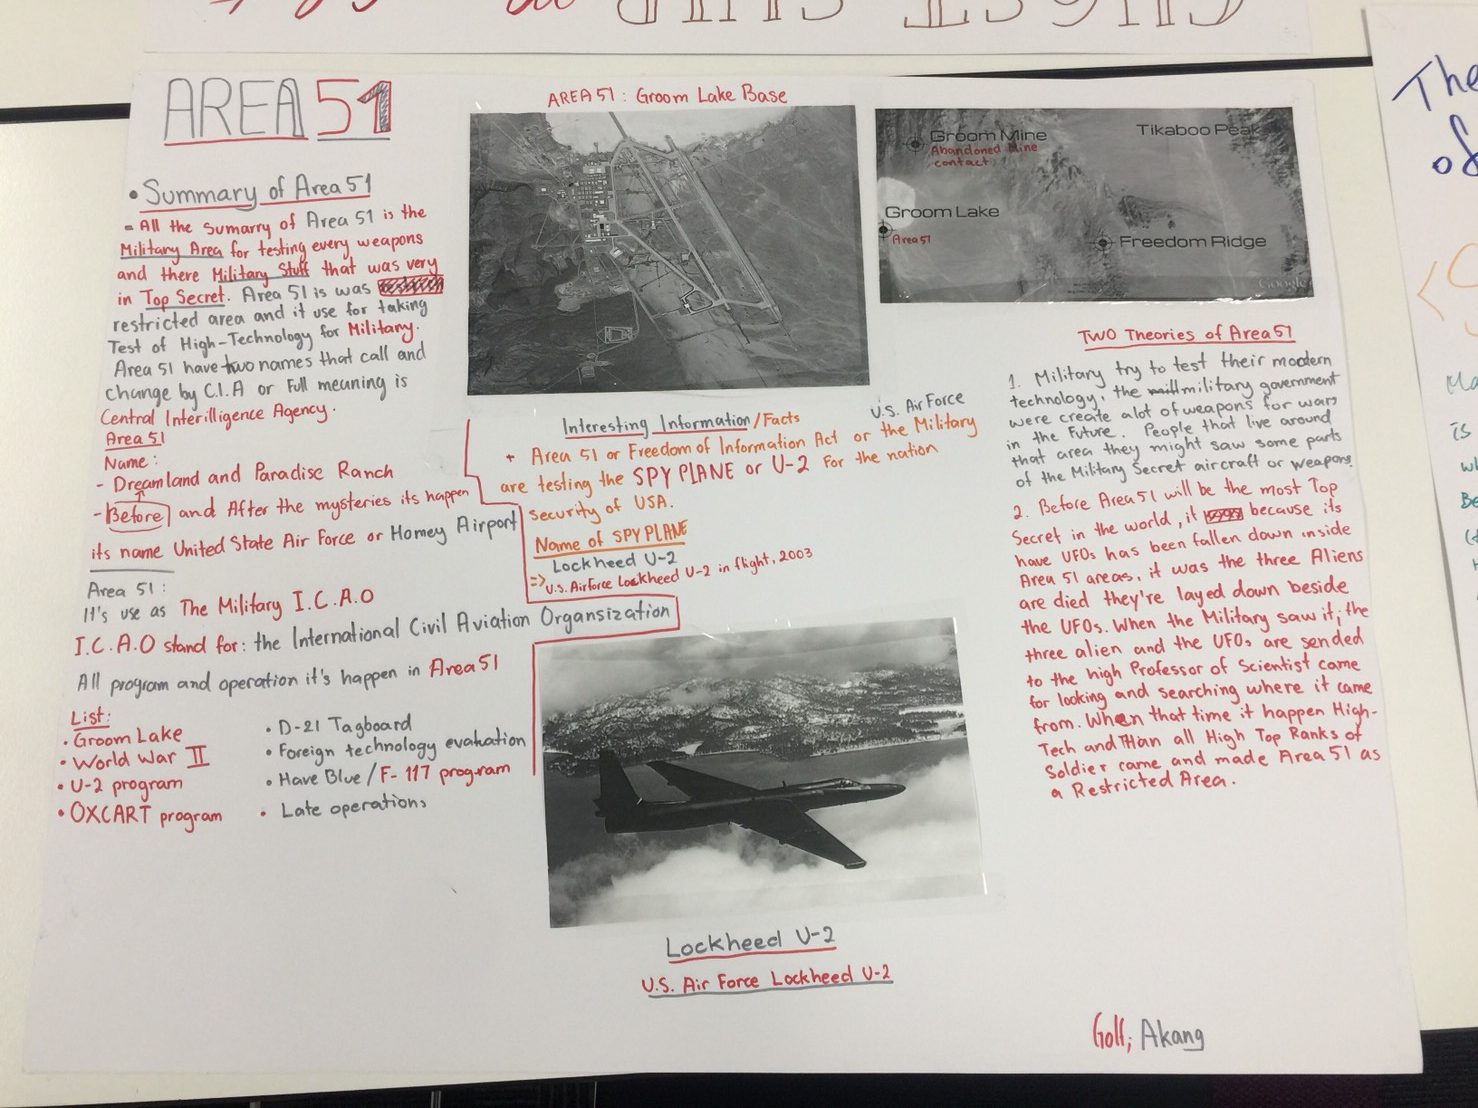 AREA 51
• Summary of Area 51
- All the Sumarry of Area 51 is the
Military Area for testing every weapons
and there Military Stuff that was very
in Top Secret. Area 51 is was
restricted area and it use for taking
Test of High-Technology for Military.
Area 51 have two names that call and
change by C.I.A or Full meaning is
Central Interilligence Agency.
Area 51
Name:
- Dreamland and Paradise Ranch
- Before and After the mysteries its happen
its name United State Air Force or Homey Airport
Area 51:
It's use as The Military I.C.A.O
I.C.A.O stand for: the International Civil Aviation Organsization
All program and operation it's happen in Area 51
List:
• Groom Lake
• World War II
• U-2 program
• OXCART program
• D-21 Tagboard
• Foreign technology evaluation
• Have Blue / F-117 program
• Late operations
AREA 51: Groom Lake Base
Groom Mine
Abandoned Mine
contact
Tikaboo Peak
Groom Lake
Area 51
Freedom Ridge
Google
Interesting Information/Facts
U.S. Air Force
+ Area 51 or Freedom of Information Act or the Military
are testing the SPY PLANE or U-2 for the nation
security of USA.
Name of SPY PLANE
Lockheed U-2
=> U.S. Airforce Lockheed U-2 in flight, 2003
Lockheed U-2
U.S. Air Force Lockheed U-2
TWO Theories of Area 51
1. Military try to test their modern
technology, the military government
were create a lot of weapons for wars
in the Future. People that live around
that area they might saw some parts
of the Military Secret aircraft or weapons.
2. Before Area 51 will be the most Top
Secret in the world, it because its
have UFOs has been fallen down inside
Area 51 areas, it was the three Aliens
are died they're layed down beside
the UFOs. When the Military saw it, the
three alien and the UFOs are sended
to the high Professor of Scientist came
for looking and searching where it came
from. When that time it happen High-
Tech and Than all High Top Ranks of
Soldier came and made Area 51 as
a Restricted Area.
Golf, Akang
The
of
is
Be